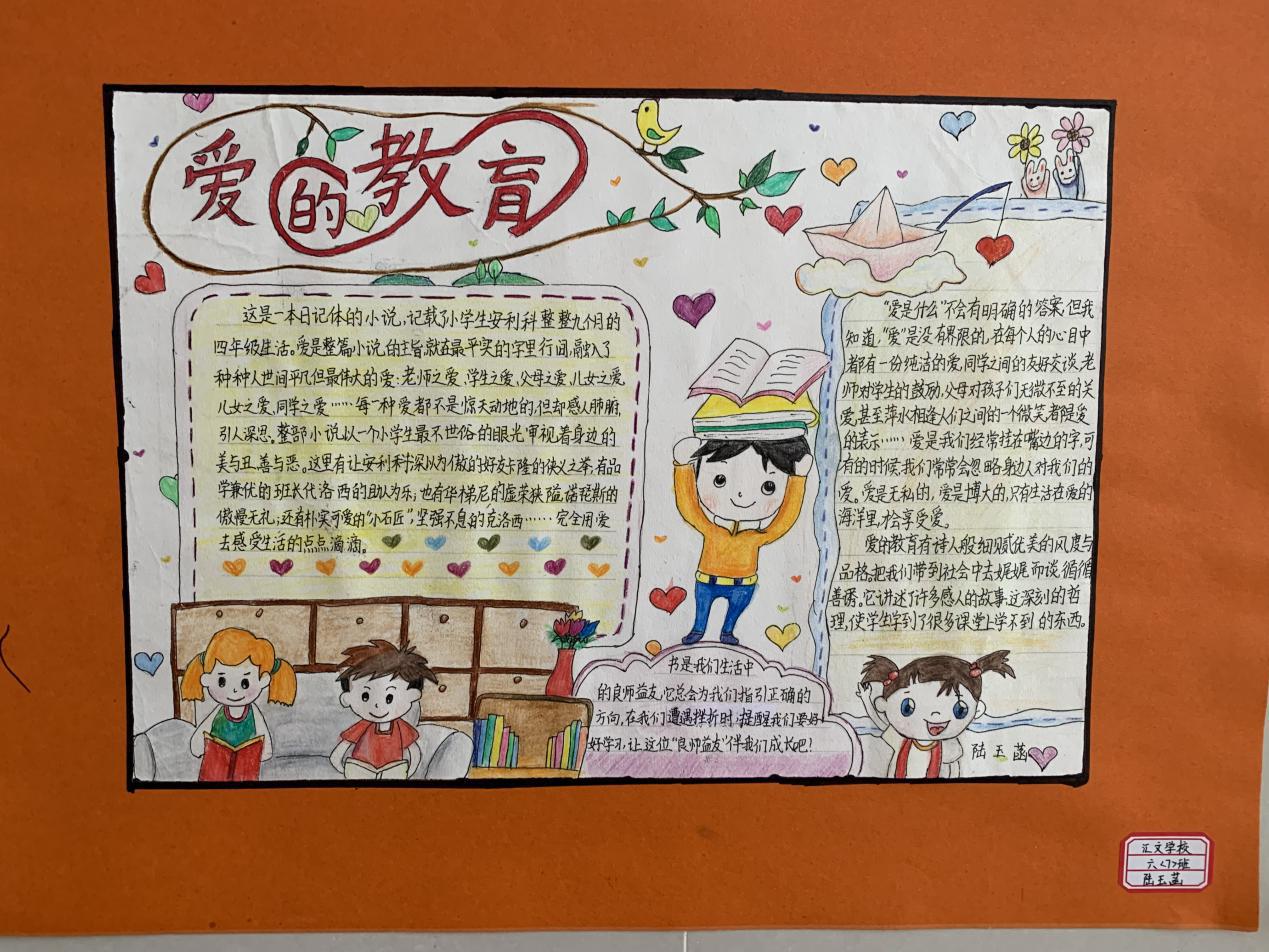 爱的教育
这是一本日记体的小说,记载了小学生安利科整整九个月的
四年级生活。爱是整篇小说的主旨,就在最平实的字里行间,融入了
种种人世间平凡但最伟大的爱:老师之爱、学生之爱、父母之爱、儿女之爱、
儿女之爱、同学之爱……每一种爱都不是惊天动地的,但却感人肺腑,
引人深思。整部小说以一个小学生最不世俗的眼光审视着身边的
美与丑、善与恶。这里有让安利科深以为傲的好友卡隆的侠义之举、有品
学兼优的班长代洛西的助人为乐;也有华梯尼的虚荣狭隘、诺琵斯的
傲慢无礼;还有朴实可爱的“小石匠”、坚强不息的克洛西……完全用爱
去感受生活的点点滴滴。
书是我们生活中
的良师益友,它总会为我们指引正确的
方向,在我们遭遇挫折时,提醒我们要好
好学习,让这位“良师益友”伴我们成长吧!
“爱是什么”不会有明确的答案,但我
知道,“爱”是没有界限的,在每个人的心目中
都有一份纯洁的爱,同学之间的友好交谈,老
师对学生的鼓励,父母对孩子们无微不至的关
爱,甚至萍水相逢人们之间的一个微笑,都是爱
的表示……爱是我们经常挂在嘴边的字,可
有的时候,我们常常会忽略身边人对我们的
爱。爱是无私的,爱是博大的,只有生活在爱的
海洋里,才会享受爱。
爱的教育有诗人般细腻优美的风度与
品格。把我们带到社会中去娓娓而谈,循循
善诱。它讲述了许多感人的故事,这深刻的哲
理,使学生学到了很多课堂上学不到的东西。
陆玉菡
汇文学校
六<7>班
陆玉菡